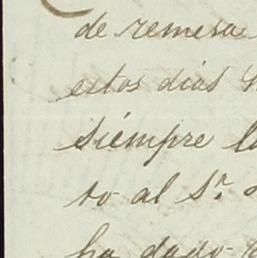 de remesa
estos dias
siémpre
to al Sr.
ha dado